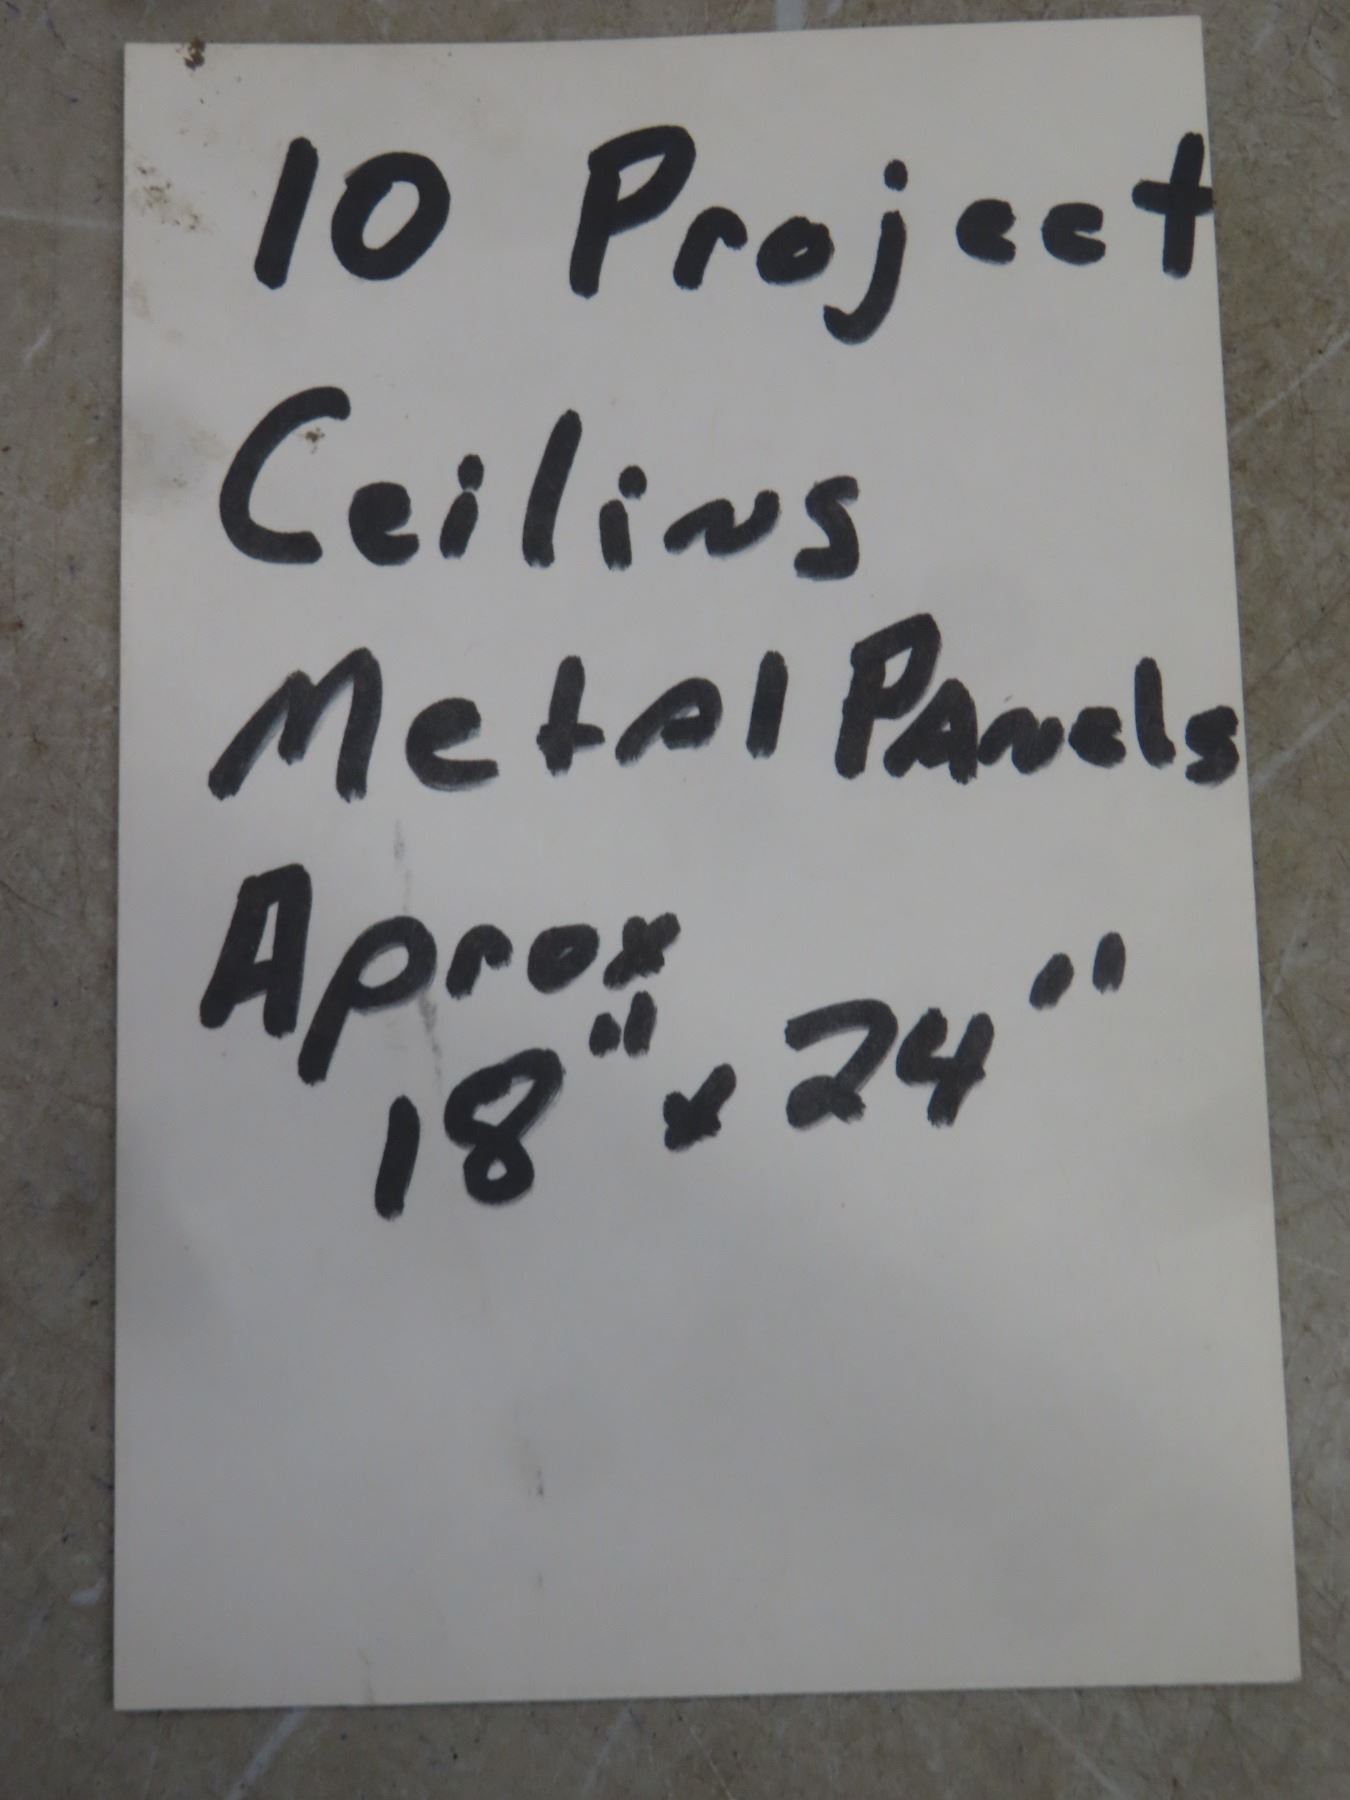 10 Project
Ceiling
Metal Panels
Aprox
18" x 24"